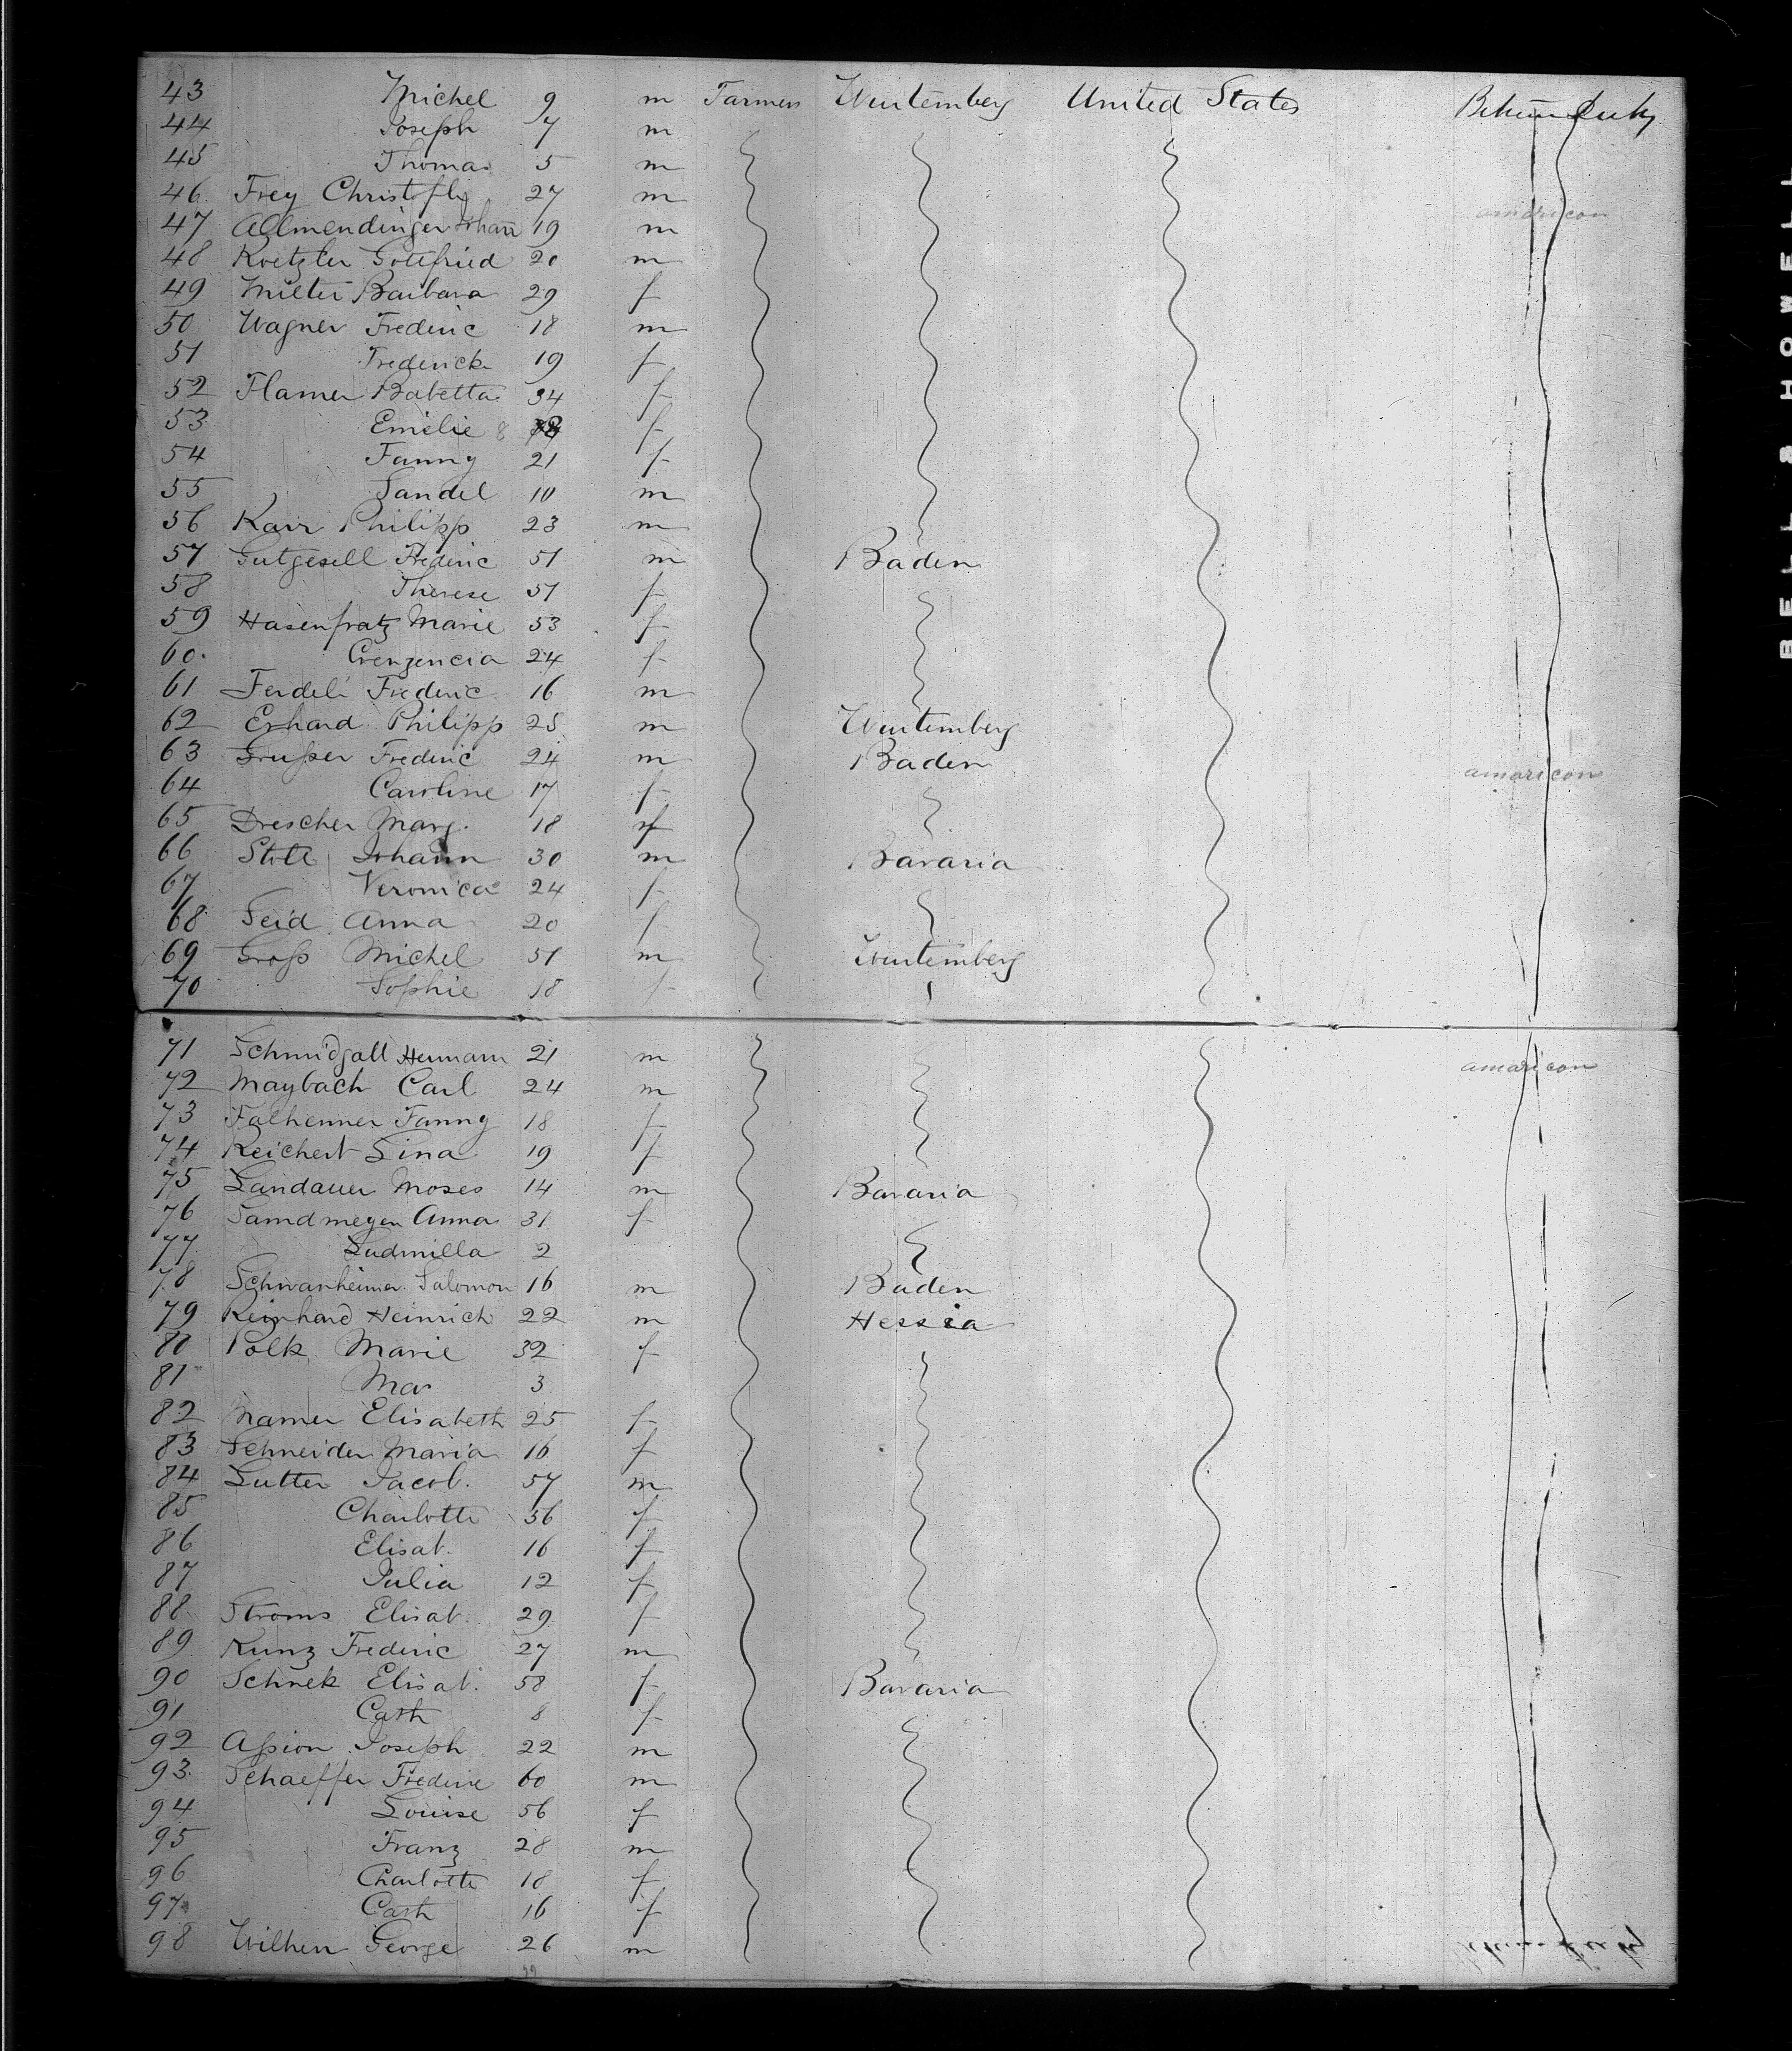 43 Michel 9 m Farmers Wurtemberg United States Between decks
44 Joseph 7 m
45 Thomas 5 m
46 Frey Christoph 27 m
47 Allmendinger Johann 19 m amaricon
48 Koetzler Gottfried 20 m
49 Barbara 29 f
50 Wagner Frederic 18 m
51 Fredericke 19 f
52 Flamer Babetta 34 f
53 Emilie 8 f
54 Fanny 21 f
55 Sandel 10 m
56 Karr Philipp 23 m
57 Gutgesell Frederic 51 m Baden
58 Therese 51 f
59 Hasenfratz Marie 53 f
60. Crenzencia 24 f
61 Ferdeli Frederic 16 m
62 Erhard Philipp 25 m Wurtemberg
63 Frederic 24 m Baden
64 Caroline 17 f amaricon
65 Drescher Marg. 18 f
66 Stoll Johann 30 m Bavaria
67 Veronica 24 f
68 Seid Anna 20 f
69 Groß Michel 51 m Wurtemberg
70 Sophie 18 f
71 Schmidgall Hermann 21 m amaricon
72 Maybach Carl 24 m
73 Falhenner Fanny 18 f
74 Reichert Lina 19 f
75 Landauer Moses 14 m Bavaria
76 Sandmeyer Anna 31 f
77 Ludmilla 2
78 Schwanheimer Salomon 16 m Baden
79 Reinhard Heinrich 22 m Hessia
80 Polk Marie 32 f
81 Mar 3
82 Namer Elisabeth 25 f
83 Schneider Maria 16 f
84 Lutter Jacob. 57 m
85 Charlotte 56 f
86 Elisab. 16 f
87 Julia 12 f
88 Stroms Elisab. 29 f
89 Kunz Frederic 27 m
90 Schnek Elisab. 58 f Bavaria
91 Cath 8 f
92 Aßion Joseph 22 m
93. Schaeffer Frederic 60 m
94 Louise 56 f
95 Franz 28 m
96 Charlotte 18 f
97 Cath 16 f
98 Wilhem George 26 m
BELL & HOWELL